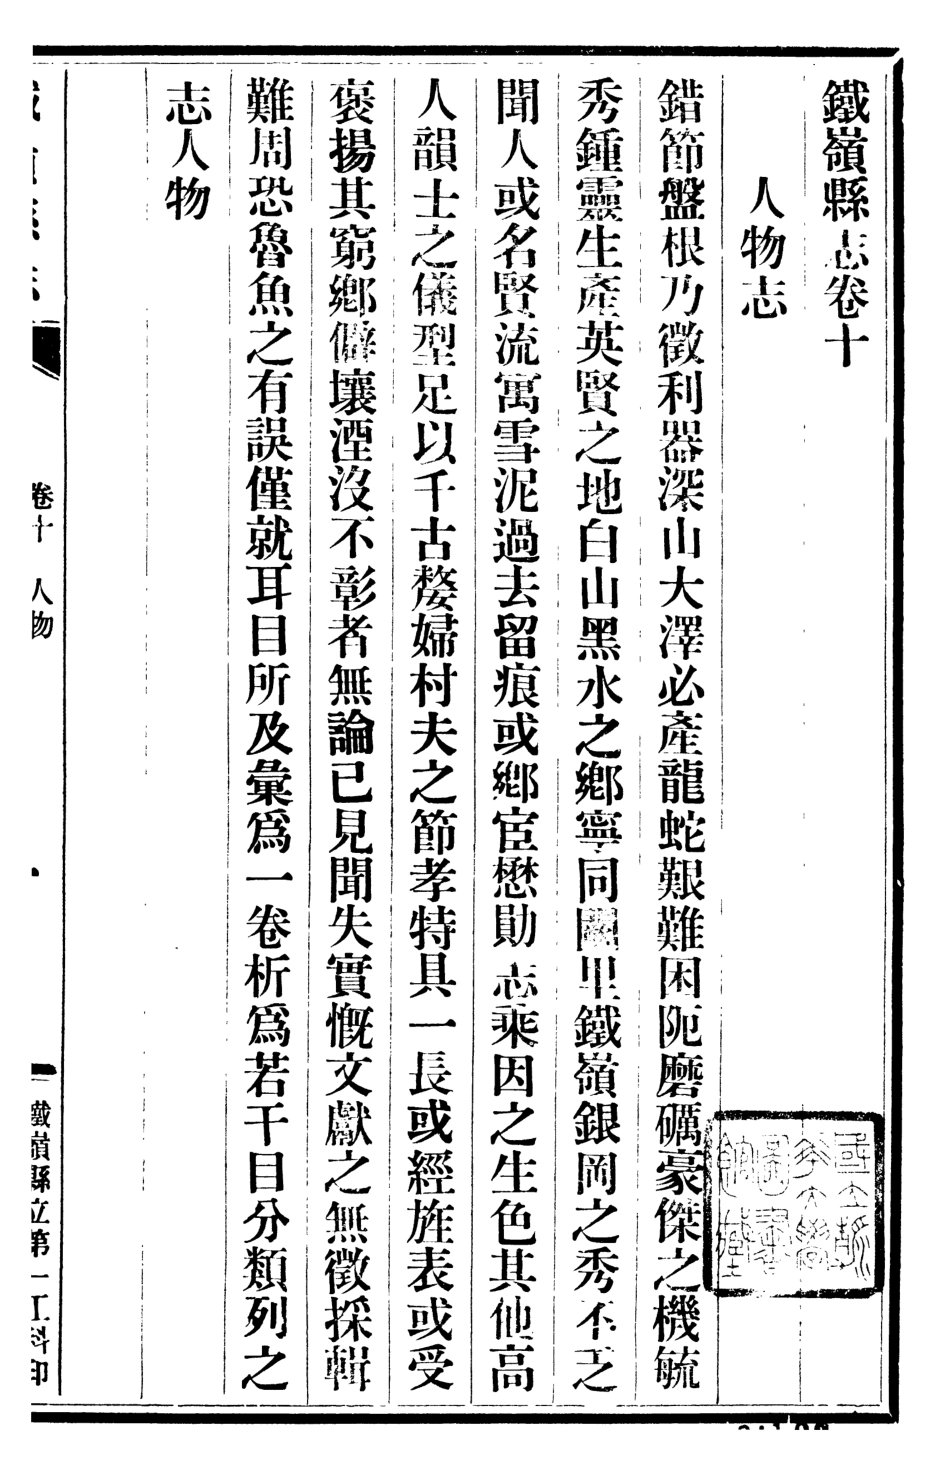 鐵嶺縣志卷十
人物志
錯節盤根乃徵利器深山大澤必產龍蛇艱難困阨磨礪豪傑之機毓
秀鍾靈生產英賢之地白山黑水之鄉寧同闤里鐵嶺銀岡之秀不乏
聞人或名賢流寓雪泥過去留痕或鄉宦懋勛志乘因之生色其他高
人韻士之儀型足以千古嫠婦村夫之節孝特具一長或經旌表或受
褒揚其窮鄉僻壤湮沒不彰者無論已見聞失實慨文獻之無徵採輯
難周恐魯魚之有誤僅就耳目所及彙爲一卷析爲若干目分類列之
志人物
卷十 人物
一
鐵嶺縣立第一工科印